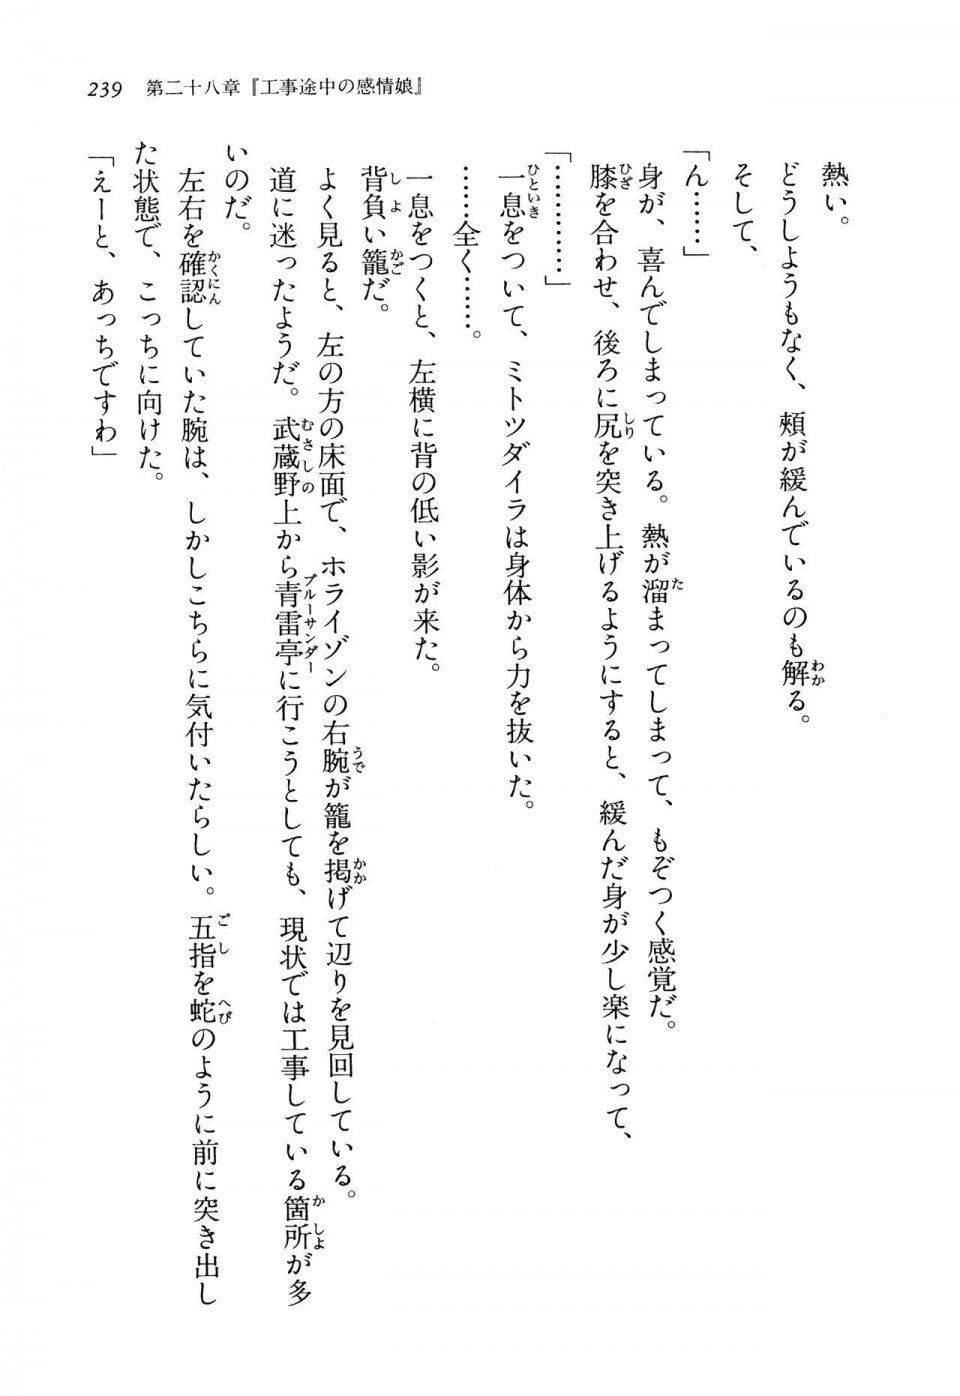 239　第二十八章『工事途中の感情娘』
熱い。
どうしようもなく、頬が緩んでいるのも解る。
そして、
「ん……」
身が、喜んでしまっている。熱が溜まってしまって、もぞつく感覚だ。
膝を合わせ、後ろに尻を突き上げるようにすると、緩んだ身が少し楽になって、
「…………」
一息をついて、ミトツダイラは身体から力を抜いた。
……全く……。
一息をつくと、左横に背の低い影が来た。
背負い籠だ。
よく見ると、左の方の床面で、ホライゾンの右腕が籠を掲げて辺りを見回している。
道に迷ったようだ。武蔵野上から青雷亭に行こうとしても、現状では工事している箇所が多
いのだ。
左右を確認していた腕は、しかしこちらに気付いたらしい。五指を蛇のように前に突き出し
た状態で、こっちに向けた。
「えーと、あっちですわ」